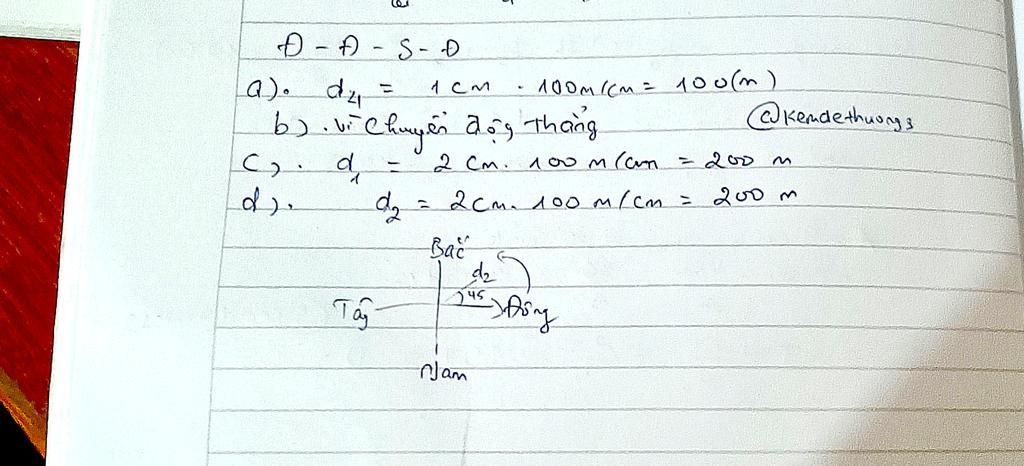 Đ - Đ - S - Đ
a). d₂₁ = 1 cm . 100m/cm = 100(m)
b). Vì chuyển động thẳng @Kemdethuong3
c). d₁ = 2 cm. 100 m/cm = 200 m
d). d₂ = 2cm. 100 m/cm = 200 m
Bắc
d₂
Tây 45 Đông
Nam